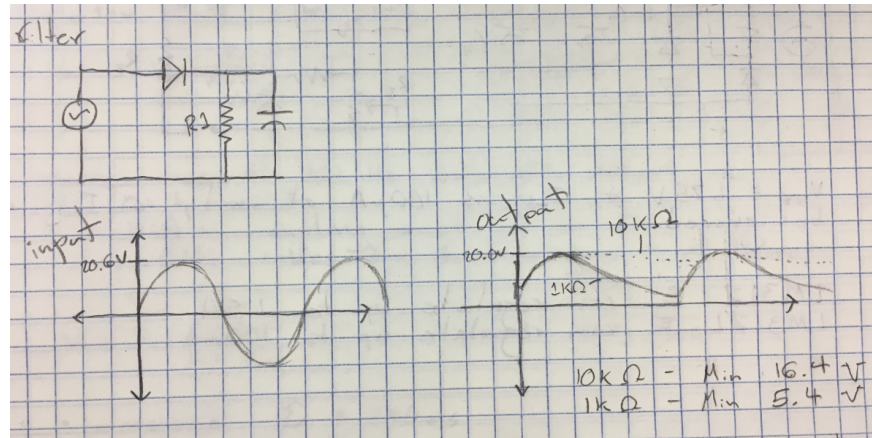 Filter
R1
input
20.6V
Output
10KΩ
20.0V
1KΩ
10K Ω - Min 16.4 V
1K Ω - Min 5.4 V